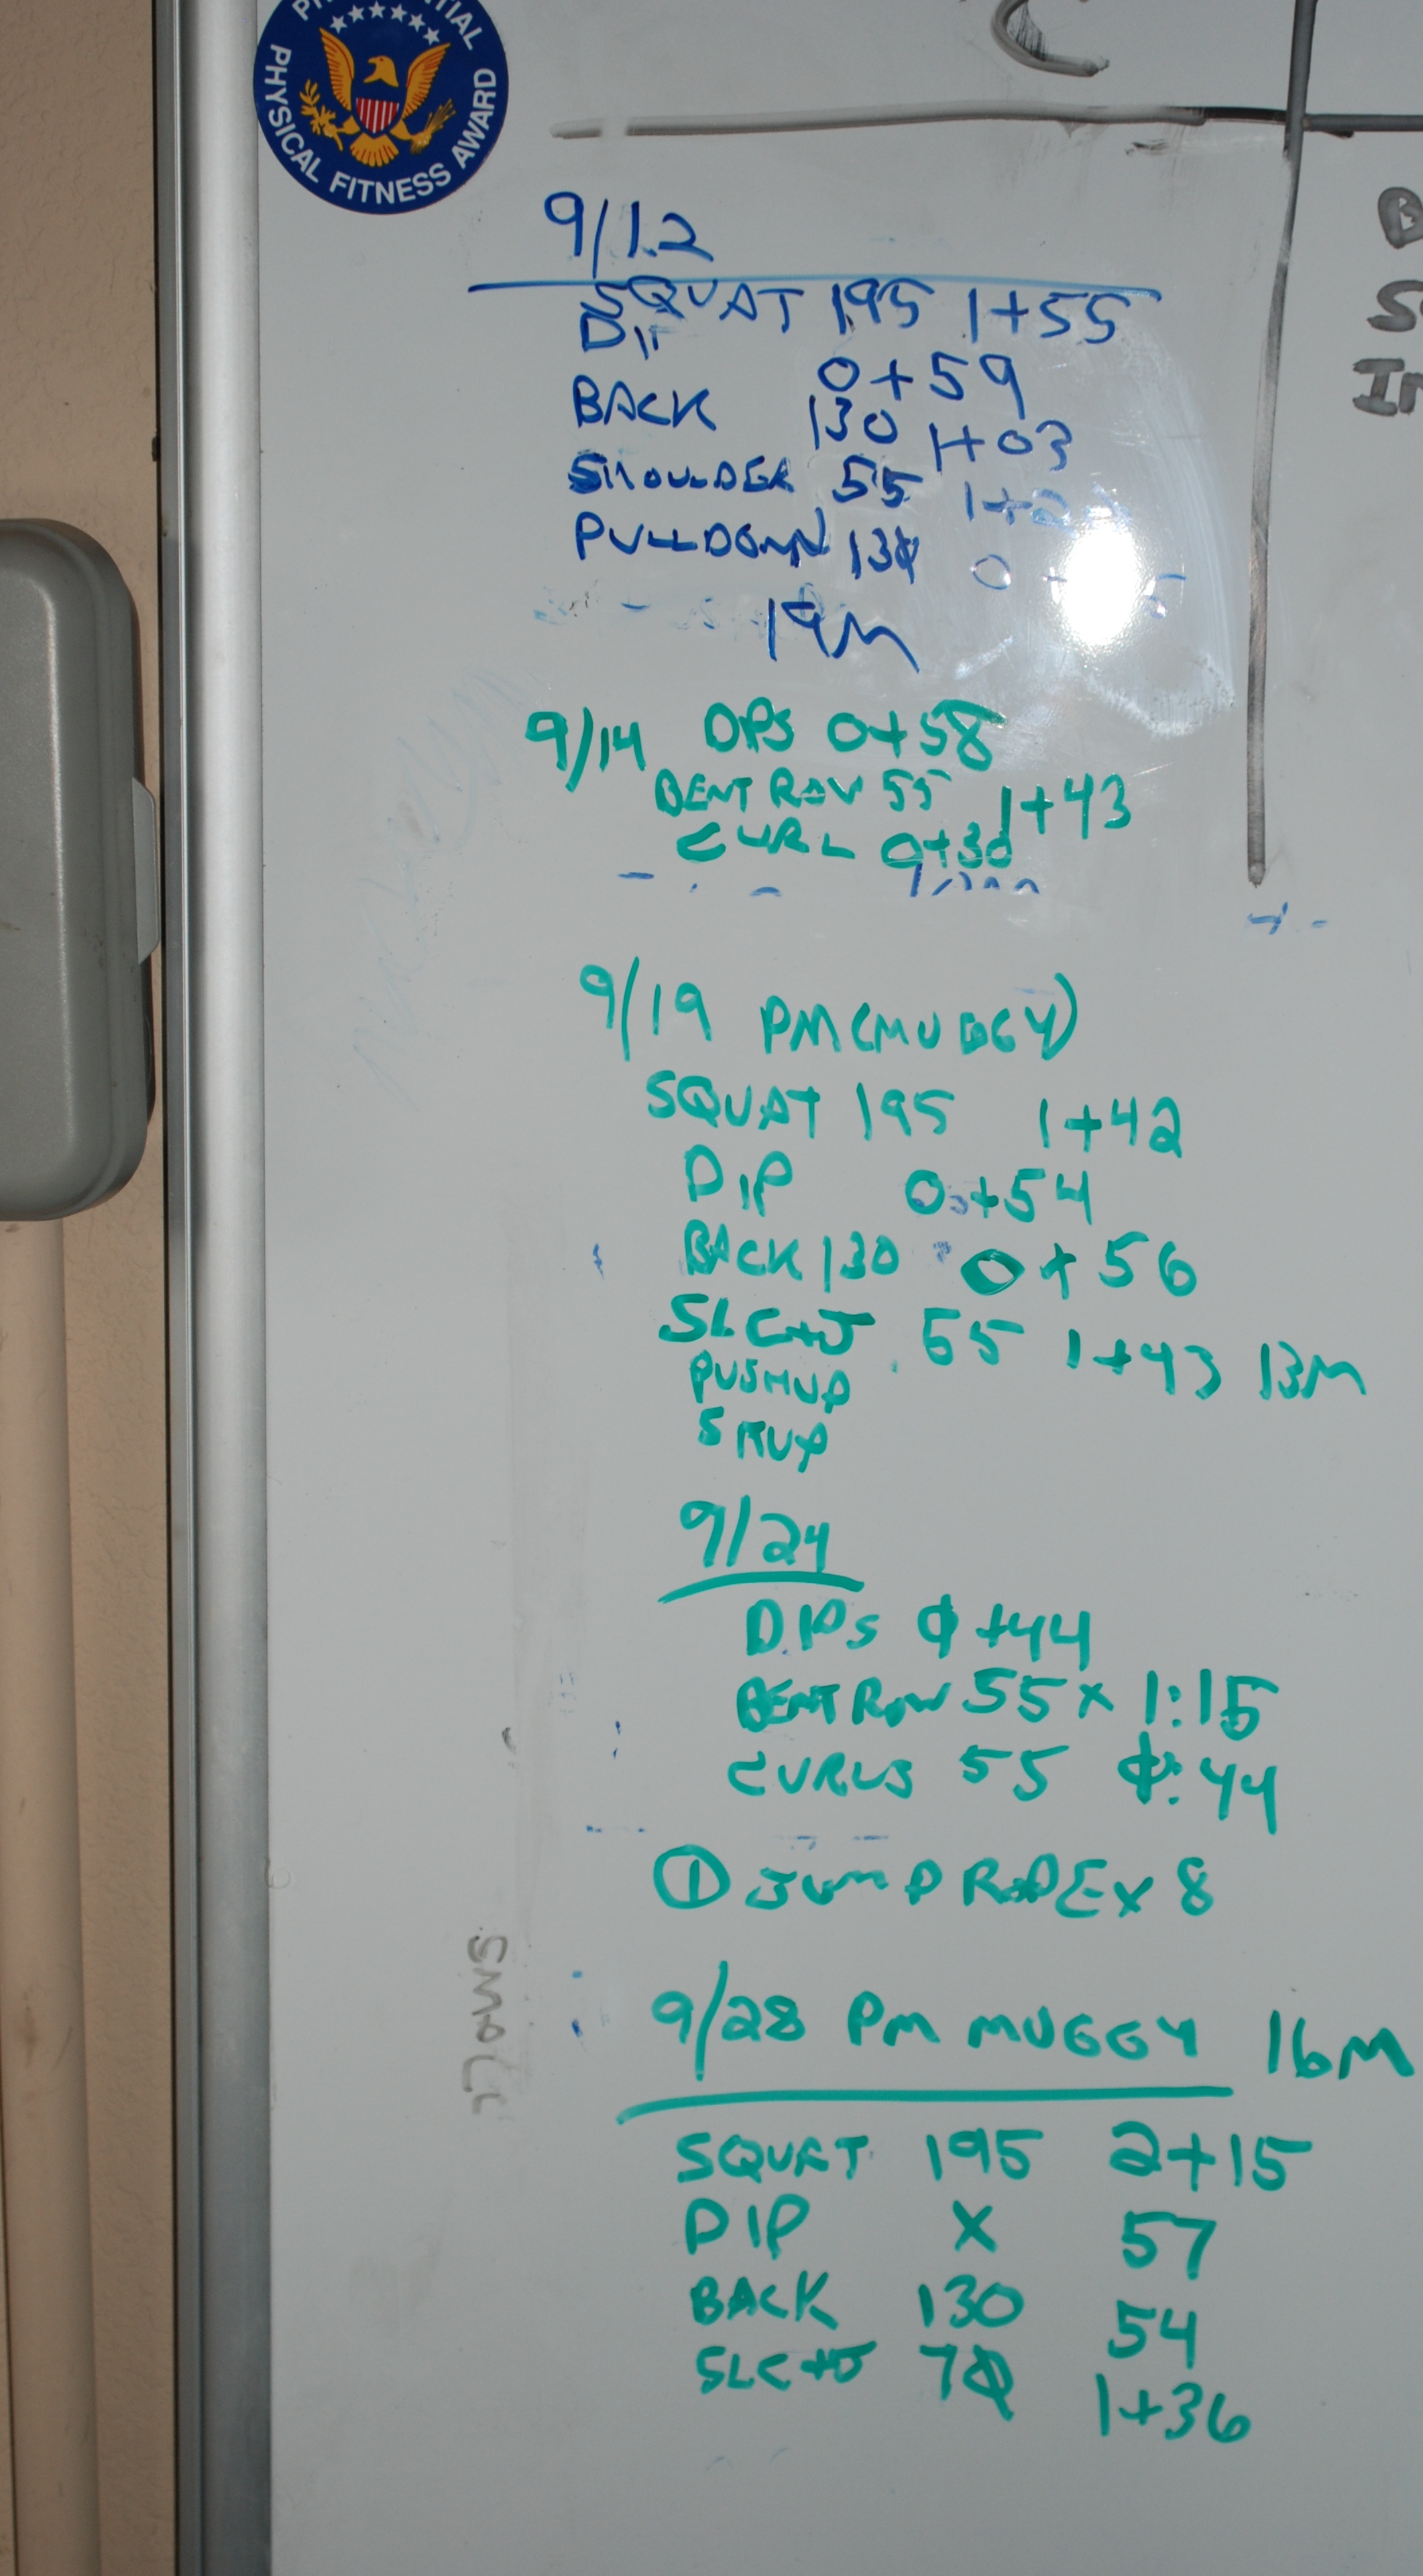 PHYSICAL FITNESS AWARD
C
9/12
SQUAT 195 1+55
DIP
0+59
BACK 130 1+03
SHOULDER 55
PULLDOWN
19M
9/14 DIPS 0+58
BENT ROW 55 1+43
CURL 0+30
9/19 PM (MUGGY)
SQUAT 195 1+42
DIP 0+54
BACK 130 0+56
SLC+J 55 1+43 13M
PUSHUP
SITUP
9/24
DIPS 0+44
BENT ROW 55 x 1:15
CURLS 55 0:44
① JUMP ROPE x 8
9/28 PM MUGGY 16M
SQUAT 195 2+15
DIP X 57
BACK 130 54
SLC+J 70 1+36